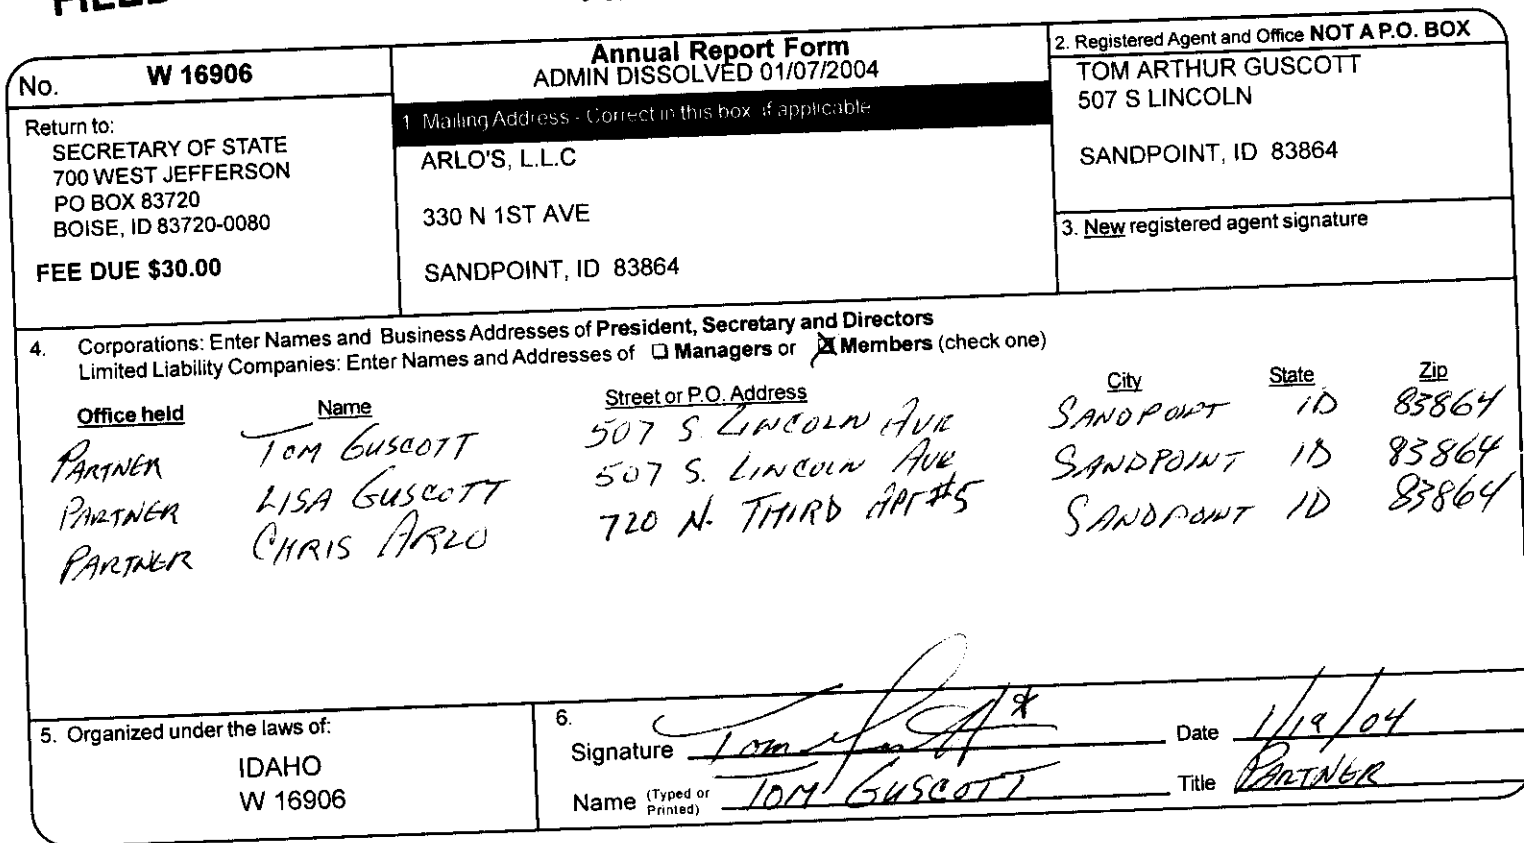 FILED
No. W 16906
Return to:
SECRETARY OF STATE
700 WEST JEFFERSON
PO BOX 83720
BOISE, ID 83720-0080
FEE DUE $30.00
Annual Report Form
ADMIN DISSOLVED 01/07/2004
1 Mailing Address - Correct in this box if applicable
ARLO'S, L.L.C
330 N 1ST AVE
SANDPOINT, ID 83864
2. Registered Agent and Office NOT A P.O. BOX
TOM ARTHUR GUSCOTT
507 S LINCOLN
SANDPOINT, ID 83864
3. New registered agent signature
4. Corporations: Enter Names and Business Addresses of President, Secretary and Directors
Limited Liability Companies: Enter Names and Addresses of Managers or Members (check one)
Office held Name Street or P.O. Address City State Zip
PARTNER TOM GUSCOTT 507 S. LINCOLN AVE SANDPOINT ID 83864
PARTNER LISA GUSCOTT 507 S. LINCOLN AVE SANDPOINT ID 83864
PARTNER CHRIS ARLO 720 N. THIRD APT #5 SANDPOINT ID 83864
5. Organized under the laws of:
IDAHO
W 16906
6.
Signature Tom Guscott Date 1/19/04
Name (Typed or Printed) TOM GUSCOTT Title PARTNER